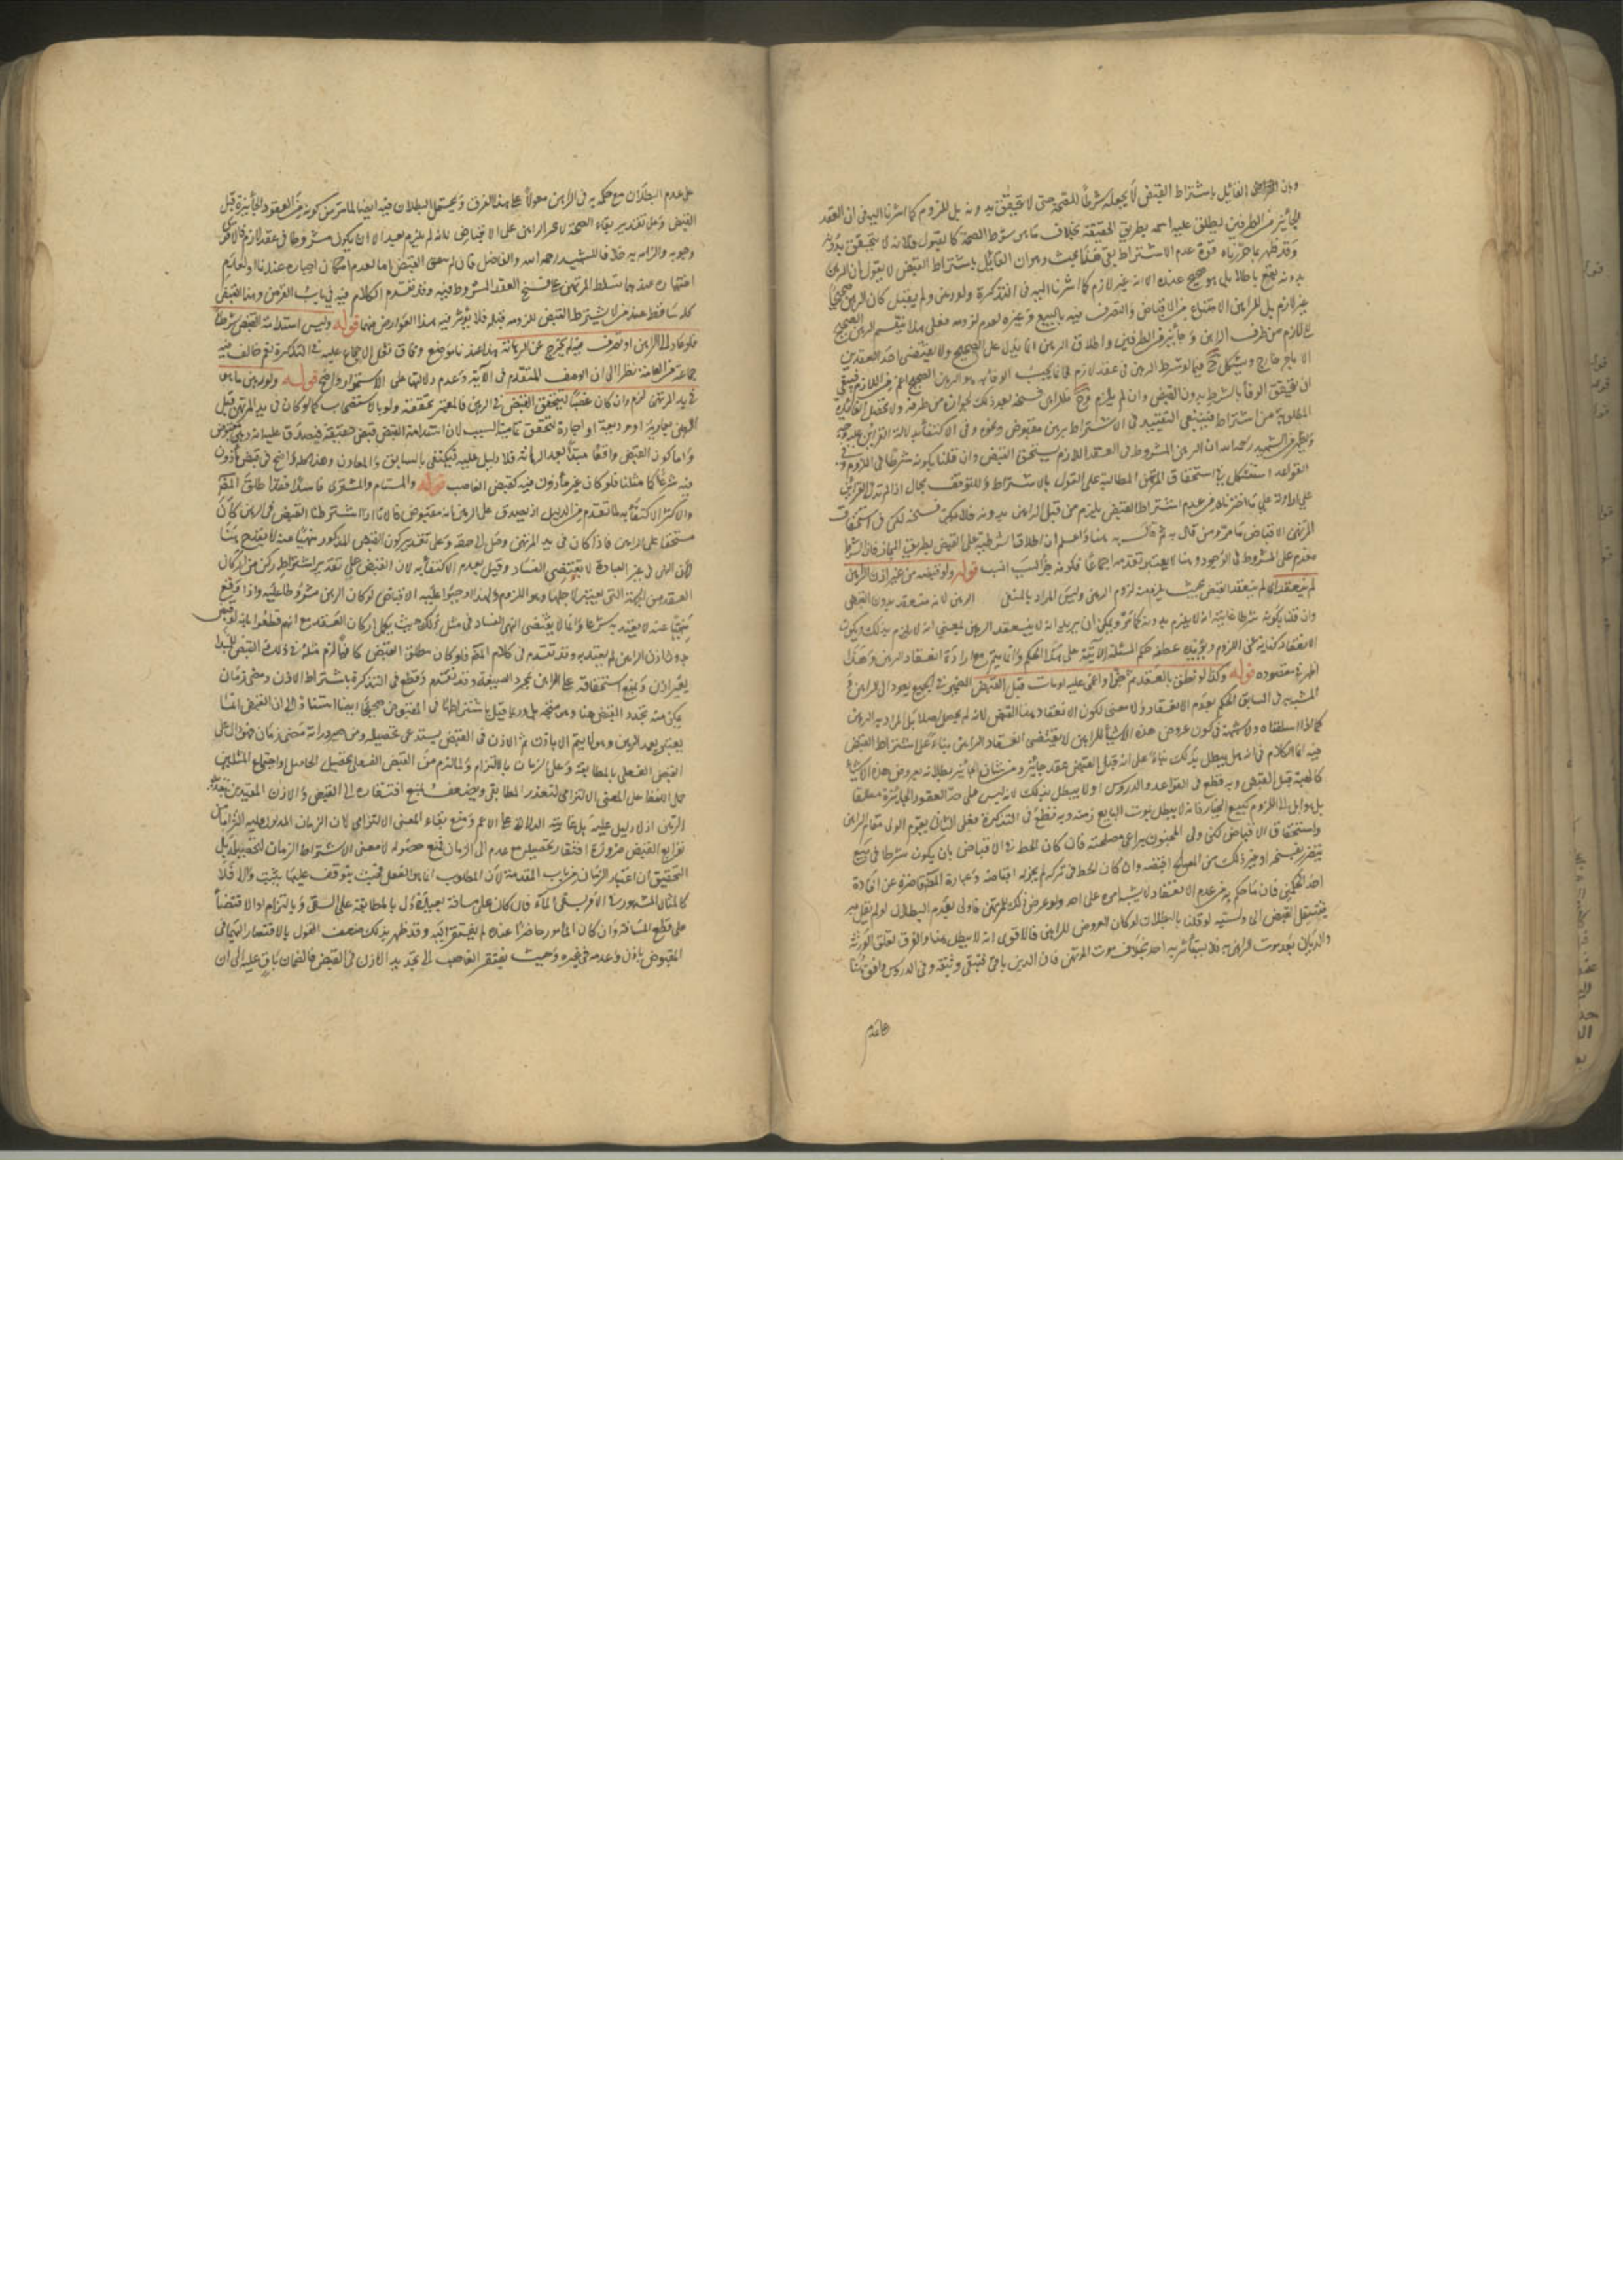 وبان القائل باشتراط القبض لا يجعله شرطا للصحة حتى لا يتحقق بدونه بل للزوم كما اشرنا اليه فى ان العقد
الجائز من الطرفين يطلق عليه اسمه بطريق الحقيقة بخلاف ما هو شرط الصحة كالقبول فلانه لا يتحقق بدونه
وقد ظهر مما حررناه قوة عدم الاشتراط بقى هنا بحث وهو ان القائل باشتراط القبض لا يقول ان الرهن
بدونه يقع باطلا بل هو صحيح عنده الا انه غير لازم كما اشرنا اليه فى التذكرة ولو رهن ولم يقبض كان الرهن صحيحا
غير لازم بل للراهن الامتناع من الاقباض والتصرف فيه بالبيع وغيره لعدم لزومه فعلى هذا ينقسم الرهن الصحيح
الى لازم من طرف الراهن وجائز من الطرفين واطلاق الرهن انما يدل على الصحيح ولا يقتضى احد العقدين
الا بامر خارج ويشكل ح فيما لو شرط الرهن فى عقد لازم فانما يجب الوفاء بالرهن الصحيح اعم من اللازم فينبغى
ان يتحقق الوفا بالشرط بدون القبض وان لم يلزم وح فللراهن فسخه بعد ذلك لجوازه من طرفه ولا تحصل الفائدة
المطلوبة من اشتراطه فينبغى التقييد فى الاشتراط برهن مقبوض ونحوه وفى الاكتفاء بدلالة القرائن عليه وجه
ويظهر من الشهيد رحمه الله ان الرهن المشروط فى العقد اللازم يستحق القبض وان قلنا بكونه شرطا فى اللزوم وفى
القواعد استشكل فى استحقاق المرتهن المطالبة على القول بالاشتراط وللتوقف مجال اذا لم تدل القرائن
على ارادته على ما اخترناه من عدم اشتراط القبض يلزم من قبل الراهن بدونه فلا يمكن فسخه لكن فى استحقاق
المرتهن الاقباض ما مر ومن قال به ثم قال به هنا واعلم ان اطلاق الشرطية على القبض بطريق المجاز فان الشرط
مقدم على المشروط فى الوجود وهنا لا يعتبر تقدمه اجماعا فكونه جزء السبب انسب قوله ولو قبضه من غير اذن الراهن
لم ينعقد اى لم ينعقد القبض بحيث يلزم منه لزوم الرهن وليس المراد بالمنفى الرهن لانه منعقد بدون القبض
وان قلنا بكونه شرطا غايته انه لا يلزم بدونه كما مر ويمكن ان يريد انه لا ينعقد الرهن بمعنى انه لا يلزم بذلك ويكون
الانعقاد كناية عن اللزوم ويؤيده عطفه حكم المسئلة الآتية على هذا الحكم وانما يتم مع ارادة انعقاد الرهن وهذا
اظهر فى مقصوده قوله وكذا لو نطق بالعقد ثم جن او اغمى عليه او مات قبل القبض الضمير فى الجميع يعود الى الراهن و
المشبه به فى السابق الحكم بعدم الانعقاد ولا معنى لكون الانعقاد هنا القبض لانه لم يحصل اصلا بل المراد به الرهن
كما اذا اسلفناه ولا شبهة فى كون عروض هذه الاشياء للراهن لا يقتضى انعقاد الراهن بناء على اشتراط القبض
فيه انما الكلام فى انه هل يبطل بذلك بناء على انه قبل القبض عقد جائز ومن شان الجائز بطلانه بعروض هذه الاشياء
كالهبة قبل القبض وبه قطع فى القواعد والدروس او لا يبطل بذلك لانه ليس على حد العقود الجائزة مطلقا
بل هو آيل الى اللزوم كبيع الخيار فانه لا يبطل بموت البايع زمنه وبه قطع فى التذكرة فعلى الثانى يقوم الولى مقام الراهن
واستحقاق الاقباض لكن ولى المجنون يراعى مصلحته فان كان الحظ فى الاقباض بان يكون شرطا فى بيع
يتضرر بفسخه او غير ذلك من المصالح اقبضه وان كان الحظ فى تركه لم يجز له اقباضه وعبارة المص قاصرة عن افادة
احد الحكمين فان ما حكم به من عدم الانعقاد لا يشبه امره على احد ولو عرض ذلك للمرتهن فاولى بعدم البطلان لو لم نقل به
فينتقل القبض الى وليه لو قلنا بالبطلان لو كان العروض للراهن فالاقوى انه لا يبطل هنا والفرق تعلق الورثة
والديان بعد موت الراهن به فلا يستأثر به احد بخلاف موت المرتهن فان الدين باق فتبقى وثيقته وفى الدروس وافق هنا
على عدم البطلان مع حكمه به فى الراهن معولا على هذا الفرق ويحتمل البطلان فيه ايضا لما مر من كونه من العقود الجائزة قبل
القبض وعلى تقدير بقاء الصحة لا يجبر الراهن على الاقباض لانه لم يلزم بعد الا ان يكون مشروطا فى عقد لازم فالاقوى
وجوبه والزامه به خلافا للشهيد رحمه الله والفاضل فان لم معنى القبض اما لعدم امكان اجباره عندنا او لعدم
اختياره عندهما تسلط المرتهن على فسخ العقد المشروط فيه وقد تقدم الكلام فيه فى باب القرض وهذا القبض
كله ساقط عند من لا يشترط القبض للزومه قبله فلا يؤثر فيه هذا العوارض منهما قوله وليس استدامة القبض شرطا
فلو عاد الى الراهن او تصرف فيه لم يخرج عن الرهانة هذا عندنا موضع وفاق نقل الاجماع عليه فى التذكرة نعم خالف فيه
جماعة من العامة نظرا الى ان الوصف المتقدم فى الآية وعدم دلالتها على الاستمرار واضح قوله ولو رهن ما هو
فى يد المرتهن لزم وان كان غصبا لتحقق القبض فى الرهن فالمعتبر تحققه ولو بالاستصحاب كما لو كان فى يد المرتهن قبل
الرهن بعارية او وديعة او اجارة لتحقق تمامية السبب لان استدامة القبض قبض حقيقة فيصدق عليه انه رهن مقبوض
واما كون القبض واقعا مبتدأ بعد الرهانة فلا دليل عليه فيكتفى بالسابق والمقارن وهذا كله واضح فى قبض مأذون
فيه شرعا كما مثلنا فلو كان غير مأذون فيه كقبض الغاصب قوله والمستام والمشترى فاسدا فقد اطلق المص
والاكثر الاكتفاء به لما تقدم من الدليل اذ يصدق على الرهن انه مقبوض فانا اذا اشترطنا القبض فى الرهن كان
مستحقا على الراهن فاذا كان فى يد المرتهن وصل الى حقه وعلى تقدير كون القبض المذكور منهيا عنه لا يقدح هنا
لان النهى فى غير العبادة لا يقتضى الفساد وقيل بعدم الاكتفاء به لان القبض على تقدير اشتراطه ركن من اركان
العقد من الجهة التى يعتبر لاجلها وهو اللزوم ولهذا اوجبوا عليه الاقباض لو كان الرهن مشروطا عليه واذا وقع
منهيا عنه لا يعتد به شرعا وانما لا يقتضى النهى الفساد فى مثل ذلك حيث يكمل اركان العقد مع انهم قطعوا بانه لو قبض
بدون اذن الراهن لم يعتد به وقد تقدم فى كلام المص فلو كان مطلق القبض كافيا لزم مثله فى ذلك القبض المبتدأ
بغير اذن ويمنع استحقاقه على الراهن بمجرد الصيغة وقد تقدم وقطع فى التذكرة باشتراط الاذن ومضى زمان
يمكن منه تجدد القبض هنا وهو متجه بل وربما قيل باشتراطها فى المقبوض صحيحا ايضا استنادا الى ان القبض انما
يعتبر بعد الرهن وهو لا يتم الا باذن ثم الاذن فى القبض يستدعى تحصيله ومن ضروراته مضى زمان فهو دال على
القبض الفعلى بالمطابقة وعلى الزمان بالالتزام ولما لزم من القبض الفعلى تحصيل الحاصل او اجتماع المثلين
حمل اللفظ على المعنى الالتزامى لتعذر المطابقى ويضعف بمنع افتقاره الى القبض والاذن المعتبرين بعد
الرهن اذ لا دليل عليه بل غايته الدلالة على الاعم ونمنع بقاء المعنى الالتزامى لان الزمان المدلول عليه التزاما من
توابع القبض ضرورة افتقار تحصيله مع عدمه الى الزمان فمع حصوله لا معنى لاشتراط الزمان لتحصيله بل
التحقيق ان اعتبار الزمان من باب المقدمة لان المطلوب انما هو الفعل فحيث يتوقف عليها يثبت والا فلا
كالمثال المشهور فى الامر بسقى الماء فان كان على مسافة بعيدة دل بالمطابقة على السقى وبالالتزام او الاقتضاء
على قطع المسافة وان كان المأمور حاضرا عنده لم يفتقر اليه وقد ظهر بذلك ضعف القول بالافتقار اليهما فى
المقبوض باذن وعدمه فى غيره وحيث يفتقر الغاصب الى تجديد الاذن فى القبض فالضمان باق عليه الى ان